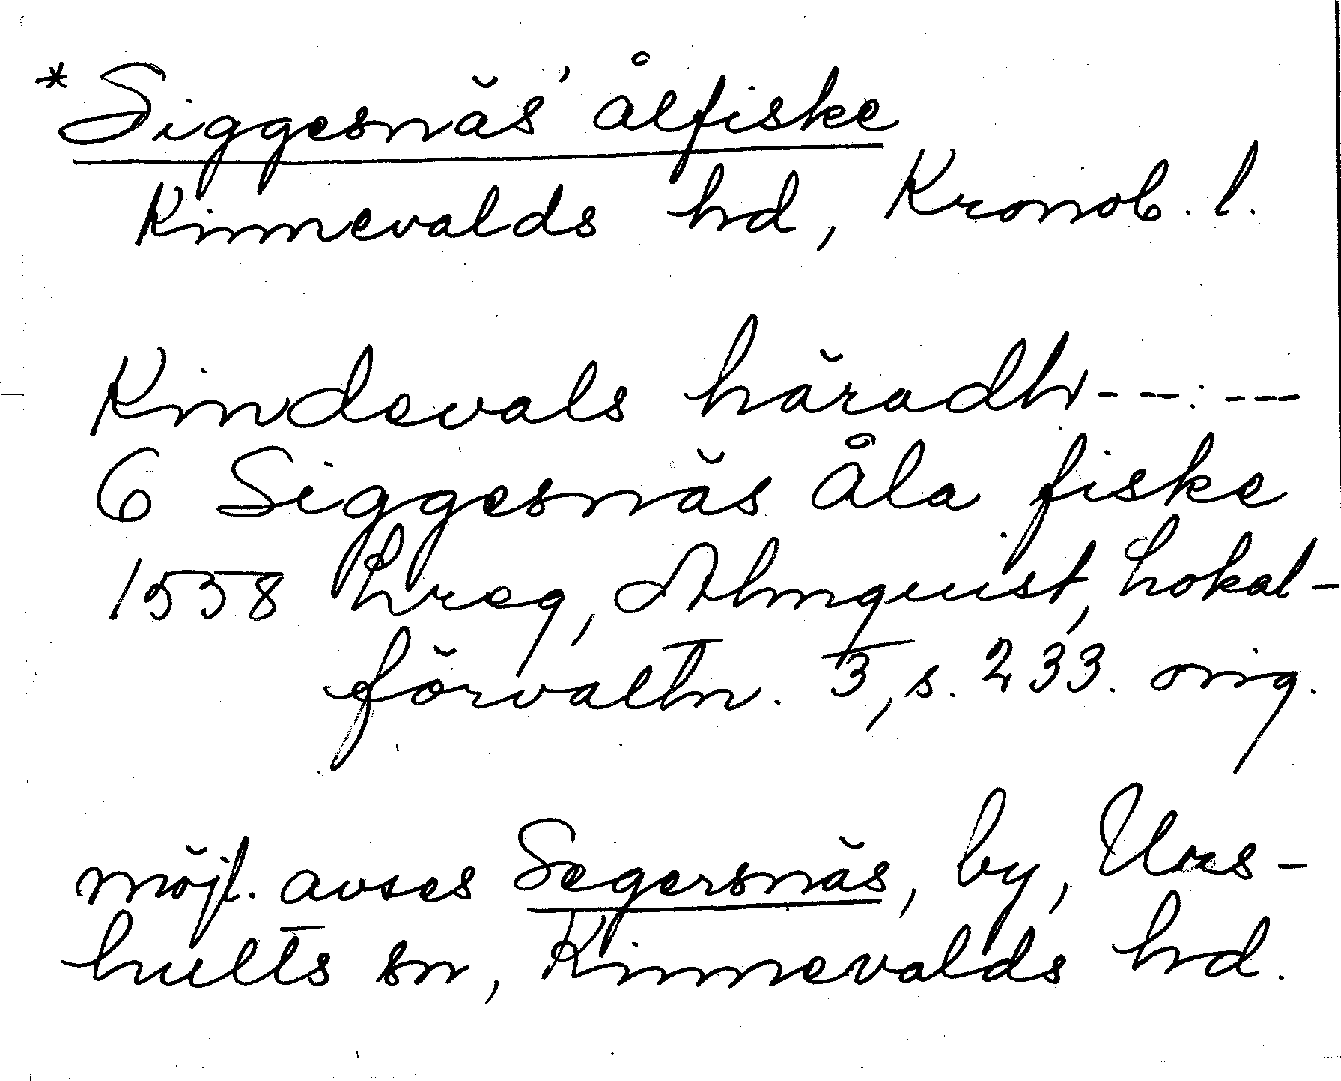 *Siggesnäs' ålfiske
Kinnevalds hd, Kronob. l.
Kindevals häradh --:---
6 Siggesnäs Åla fiske
1538 hreg, Almquist, Lokal-
förvaltn. 3, s. 233. orig.
möjl. avses Segersnäs, by, Urs-
hults sn, Kinnevalds hd.